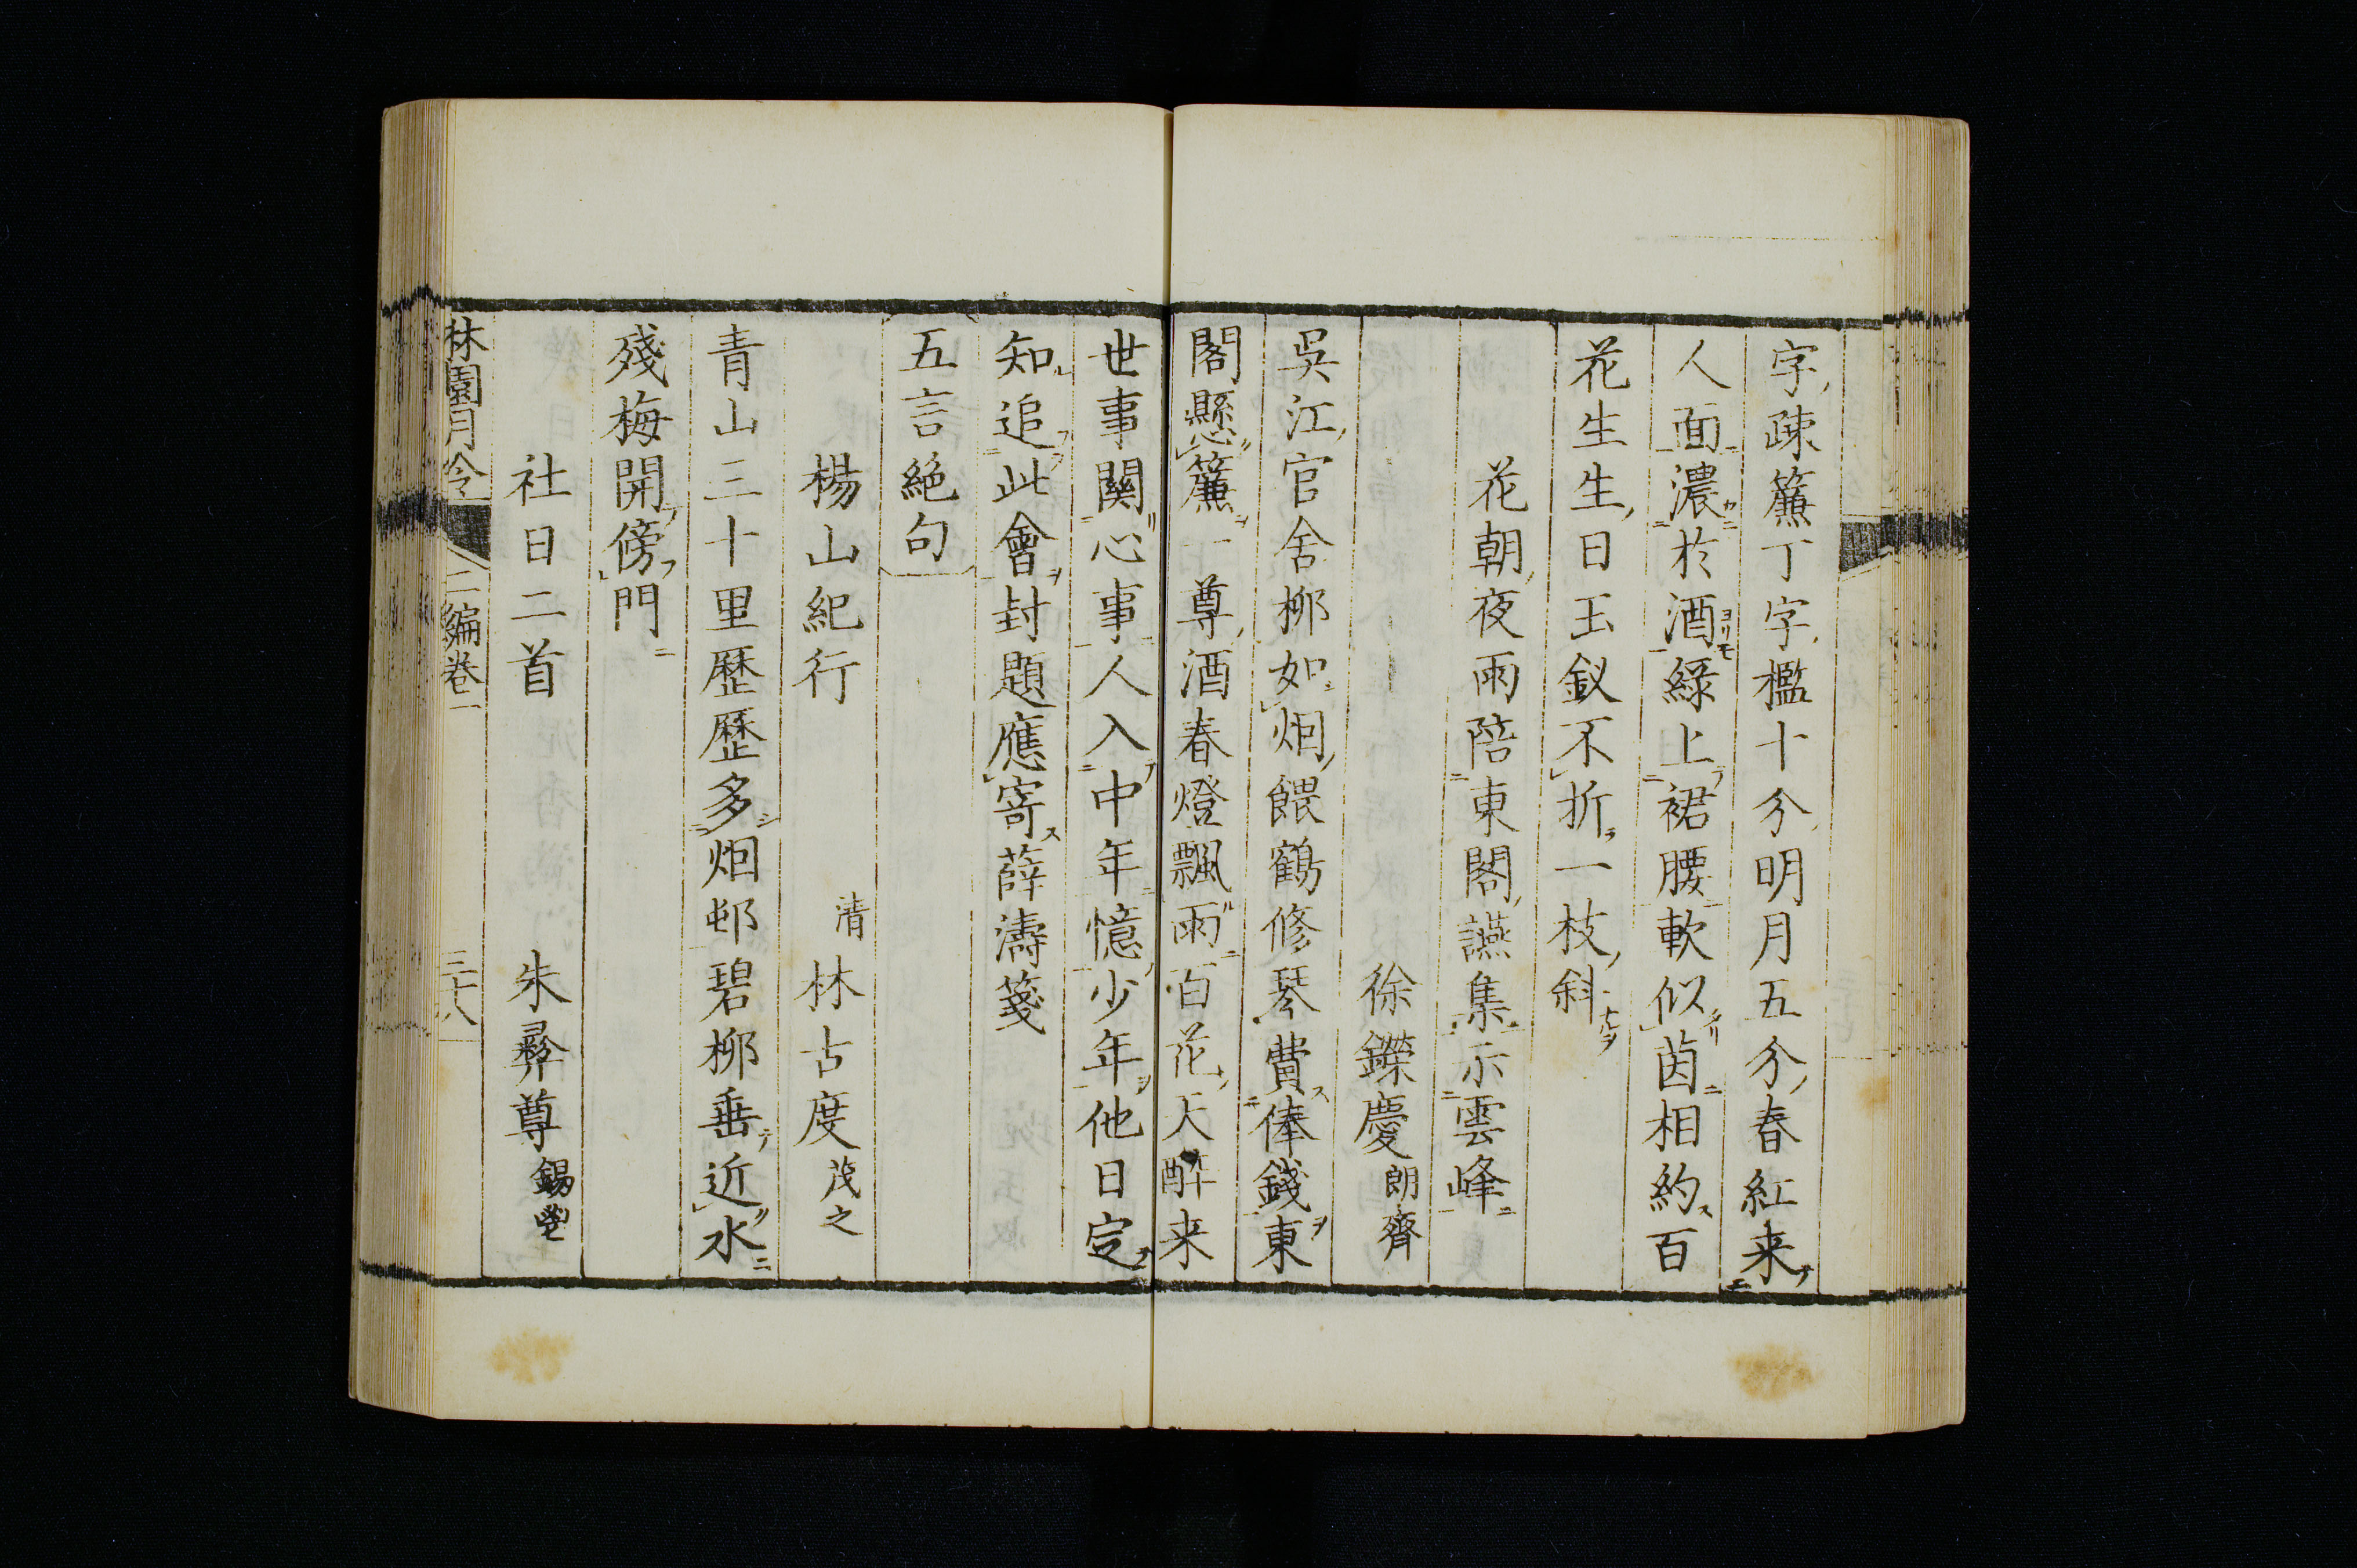 字疎簾丁字檻十分明月五分春紅来
人面濃於酒緑上裙腰軟似茵相約百
花生生日玉釵不折一枝斜
花朝夜雨陪東閣讌集示雲峰
徐鑅慶朗齊
呉江官舎栁如烟餵鶴修琴費俸錢東
閣懸簾一尊酒春燈飄雨百花天酔来
世事關心事人入中年憶少年他日定
知追此會封題應寄薛濤箋
五言絶句
楊山紀行 清林古度茂之
青山三十里歴歴多烟邨碧栁垂近水
殘梅開傍門
社日二首 朱彜尊錫鬯
林園月令 二編巻一 三十八